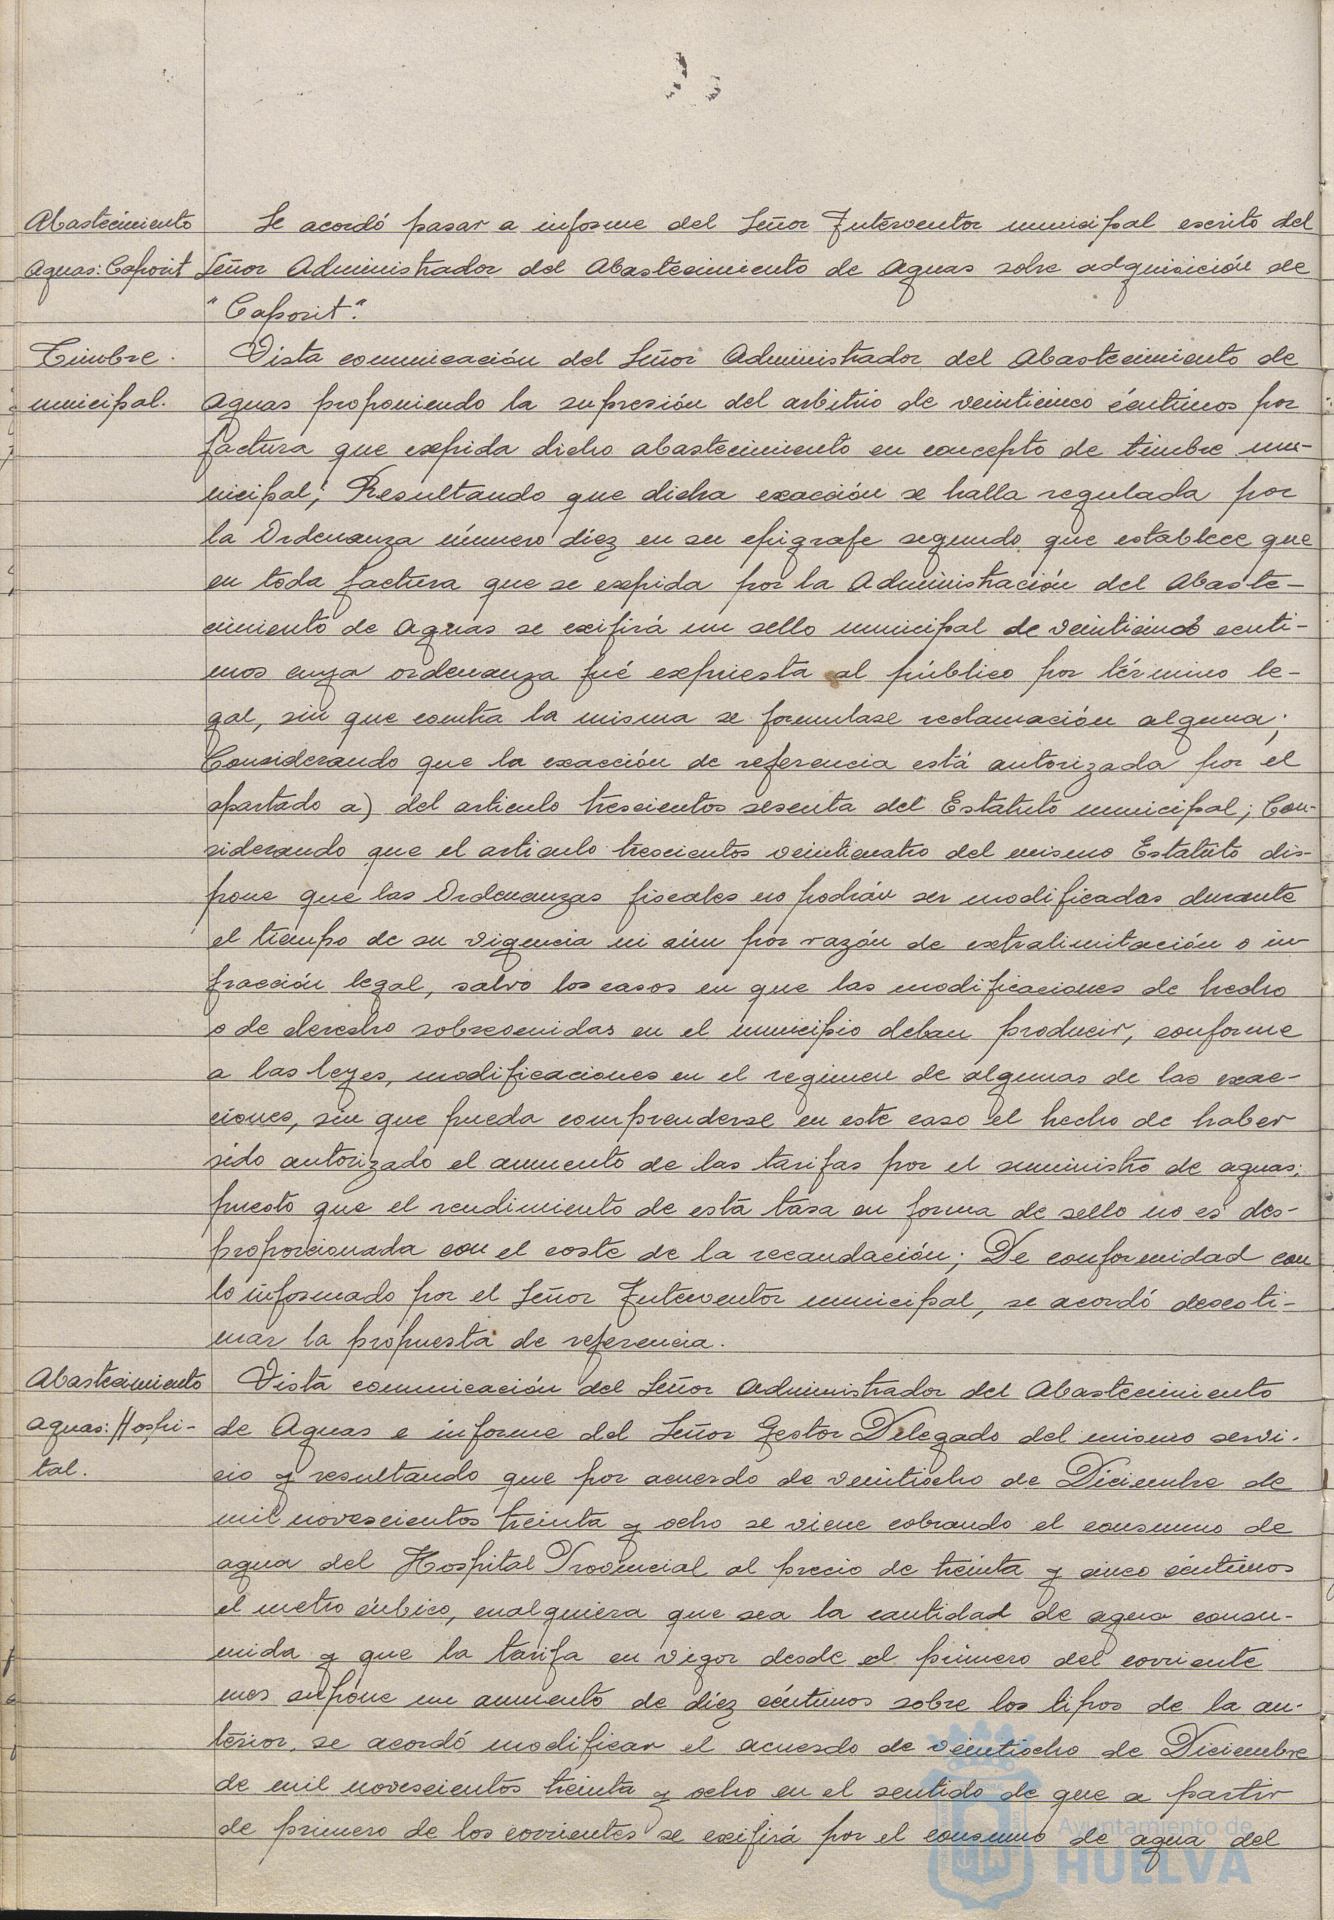 Abastecimiento
Aguas: Caporit
Se acordó pasar a informe del Señor Interventor municipal escrito del
Señor Administrador del Abastecimiento de Aguas sobre adquisición de
"Caporit".
Timbre
municipal.
Vista comunicación del Señor Administrador del Abastecimiento de
Aguas proponiendo la supresión del arbitrio de veinticinco céntimos por
factura que expida dicho abastecimiento en concepto de timbre mu-
nicipal; Resultando que dicha exacción se halla regulada por
la Ordenanza número diez en su epígrafe segundo que establece que
en toda factura que se expida por la Administración del Abaste-
cimiento de Aguas se exijirá un sello municipal de veinticinco centi-
mos cuya ordenanza fué expuesta al público por término le-
gal, sin que contra la misma se formulase reclamación alguna;
Considerando que la exacción de referencia está autorizada por el
apartado a) del articulo trescientos sesenta del Estatuto municipal; Con-
siderando que el articulo trescientos veinticuatro del mismo Estatuto dis-
pone que las Ordenanzas fiscales no podrán ser modificadas durante
el tiempo de su vigencia ni aún por razón de extralimitación o in-
fracción legal, salvo los casos en que las modificaciones de hecho
o de derecho sobrevenidas en el municipio deban producir, conforme
a las leyes, modificaciones en el regimen de algunas de las exac-
ciones, sin que pueda comprenderse en este caso el hecho de haber
sido autorizado el aumento de las tarifas por el suministro de aguas;
puesto que el rendimiento de esta tasa en forma de sello no es des-
proporcionada con el coste de la recaudación; De conformidad con
lo informado por el Señor Interventor municipal, se acordó desesti-
mar la propuesta de referencia.
Abastecimiento
aguas: Hospi-
tal.
Vista comunicación del Señor Administrador del Abastecimiento
de Aguas e informe del Señor Gestor Delegado del mismo servi-
cio y resultando que por acuerdo de veintiocho de Diciembre de
mil novescientos treinta y ocho se viene cobrando el consumo de
agua del Hospital Provincial al precio de treinta y cinco céntimos
el metro cúbico, cualquiera que sea la cantidad de agua consu-
mida y que la tarifa en vigor desde el primero del corriente
mes supone un aumento de diez céntimos sobre los tipos de la an-
terior, se acordó modificar el acuerdo de veintiocho de Diciembre
de mil novescientos treinta y ocho en el sentido de que a partir
de primero de los corrientes se exijirá por el consumo de agua del
Ayuntamiento de
HUELVA